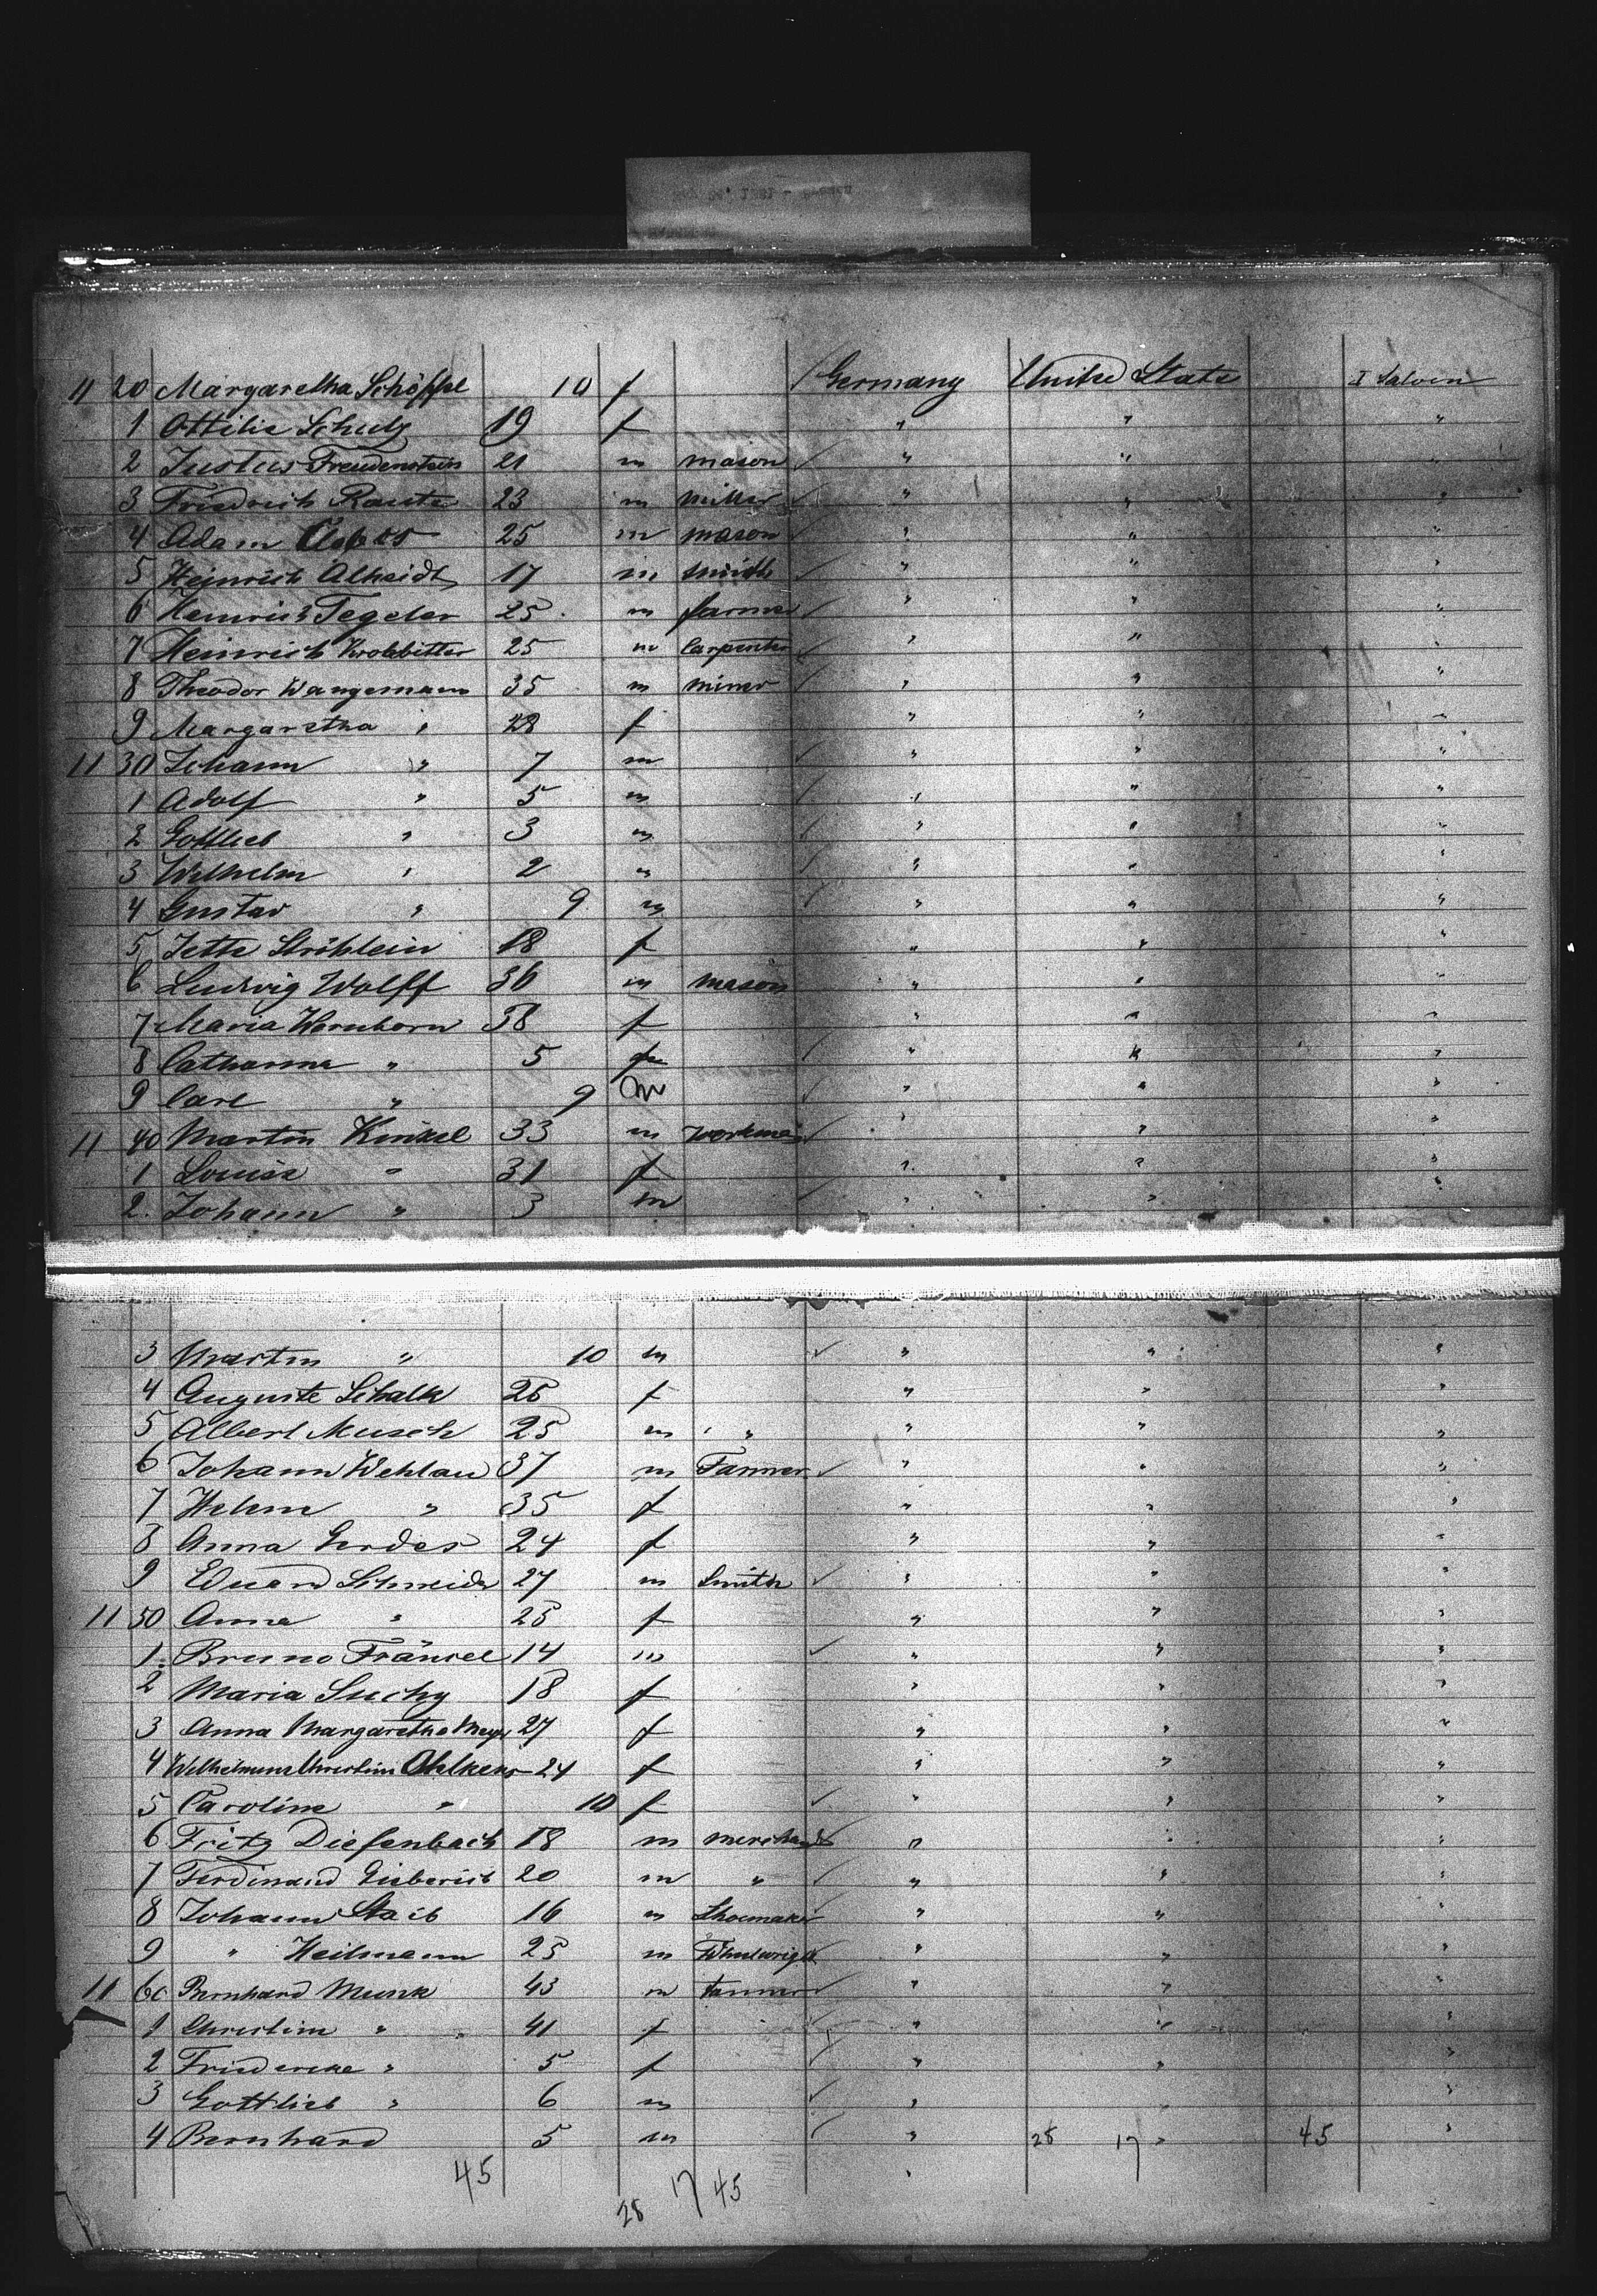 11 20 Margaretha Schöffel 10 f Germany United State I Saloon
1 Ottilie Schulz 19 f " " "
2 Justus Freudenstein 21 m mason " " "
3 Friedrich Raute 23 m miller " " "
4 Adam 25 m mason " " "
5 Heinrich Alheidt 17 m smith " " "
6 Heinrich Tegeler 25 m farmer " " "
7 Heinrich 25 m Carpenter " " "
8 Theodor Wangemann 35 m miner " " "
9 Margaretha " 28 f " " "
11 30 Johann " 7 m " " "
1 Adolf " 5 m " " "
2 Gottlieb " 3 m " " "
3 Wilhelm " 2 m " " "
4 Gustav " 9 m " " "
5 Jette Ströhlein 18 f " " "
6 Ludwig Wolff 36 m mason " " "
7 Maria Wernborn 38 f " " "
8 Catharina " 5 f " " "
9 Carl " 9 m " " "
11 40 Martin Kinkel 33 m workman " " "
1 Louise " 31 f " " "
2. Johann " 3 m " " "
3 Martin " 10 m " " "
4 Auguste Schalk 25 f " " "
5 Albert Musch 25 m " " " "
6 Johann Wehlau 37 m Farmer " " "
7 Helene " 35 f " " "
8 Anna Gerdes 24 f " " "
9 Eduard Schneider 27 m Smith " " "
11 50 Anna " 25 f " " "
1. Bruno Fränkel 14 m " " "
2 Maria Suchy 18 f " " "
3 Anna Margaretha Meyer 27 f " " "
4 Wilhelmine Christine Ahlkens 24 f " " "
5 Caroline " 10 f " " "
6 Fritz Diefenbach 18 m merchant " " "
7 Ferdinand 20 m " " " "
8 Johann Staib 16 m Shoemaker " " "
9 " Heilmann 25 m Wheelwright " " "
11 60 Bernhard Munk 43 m farmer " " "
1 Christine " 41 f " " "
2 Friedericke " 5 f " " "
3 Gottlieb " 6 m " " "
4 Bernhard 5 m " 28 17 " 45 "
45 28 17 45